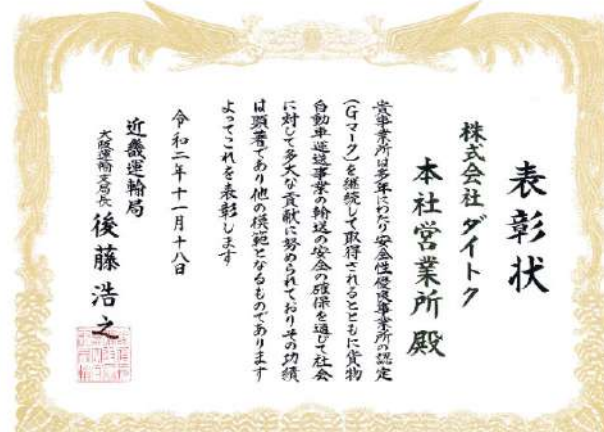 表彰状
株式会社 ダイトク
本社営業所 殿
貴事業所は多年にわたり安全性優良事業所の認定
(Gマーク)を継続して取得されるとともに貨物
自動車運送事業の輸送の安全の確保を通じて社会
に対して多大な貢献に努められておりその功績
は顕著であり他の模範となるものであります
よってこれを表彰します
令和二年十一月十八日
近畿運輸局
大阪運輸支局長 後藤浩之